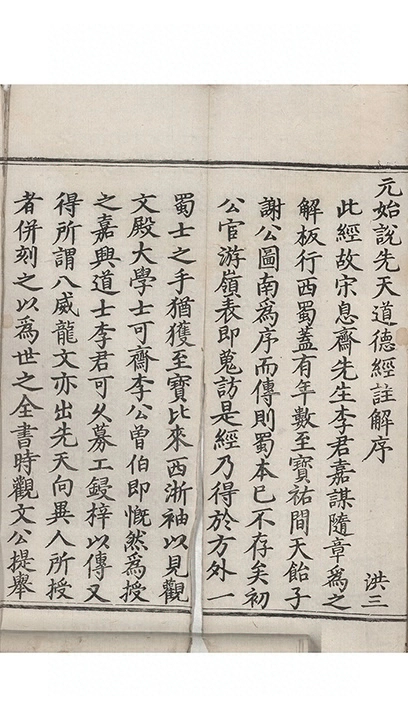 元始說先天道德經註解序
洪三
此經故宋息齋先生李君嘉謀隨章爲之
解板行西蜀蓋有年數至寶祐間天飴子
謝公圖南爲序而傳則蜀本已不存矣初
公官游嶺表即蒐訪是經乃得於方外一
蜀士之手猶獲至寶比來西浙袖以見觀
文殿大學士可齋李公曾伯即慨然爲授
之嘉興道士李君可久募工鋟梓以傳又
得所謂八威龍文亦出先天向異人所授
者併刻之以爲世之全書時觀文公提舉